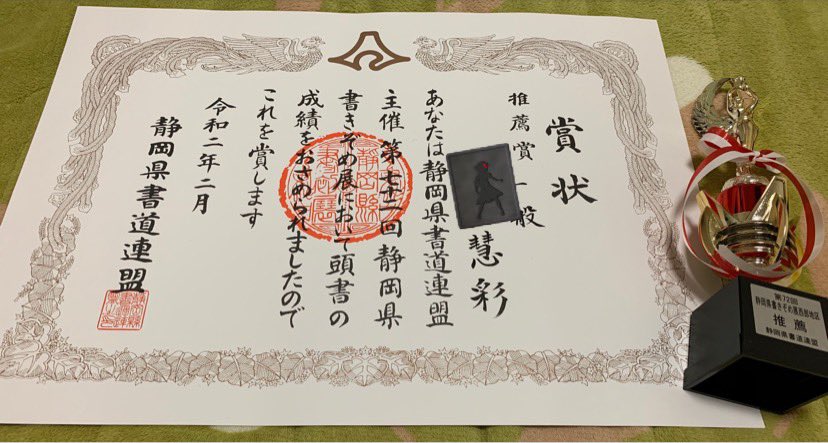 賞状
推薦賞 一般
慧彩
あなたは静岡県書道連盟
主催第七十二回静岡県
書きぞめ展において頭書の
成績をおさめられましたので
これを賞します
令和二年二月
静岡県書道連盟
第72回
静岡県書きぞめ展西部地区
推薦
静岡県書道連盟